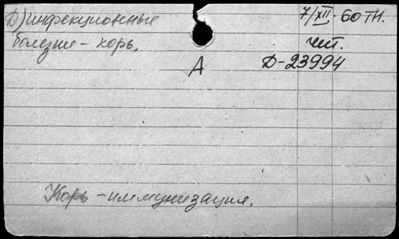 Д) инфекционные
болезни - корь.
7/XII-60 тн.
чит.
А
Д-23994
Корь - иммунизация.